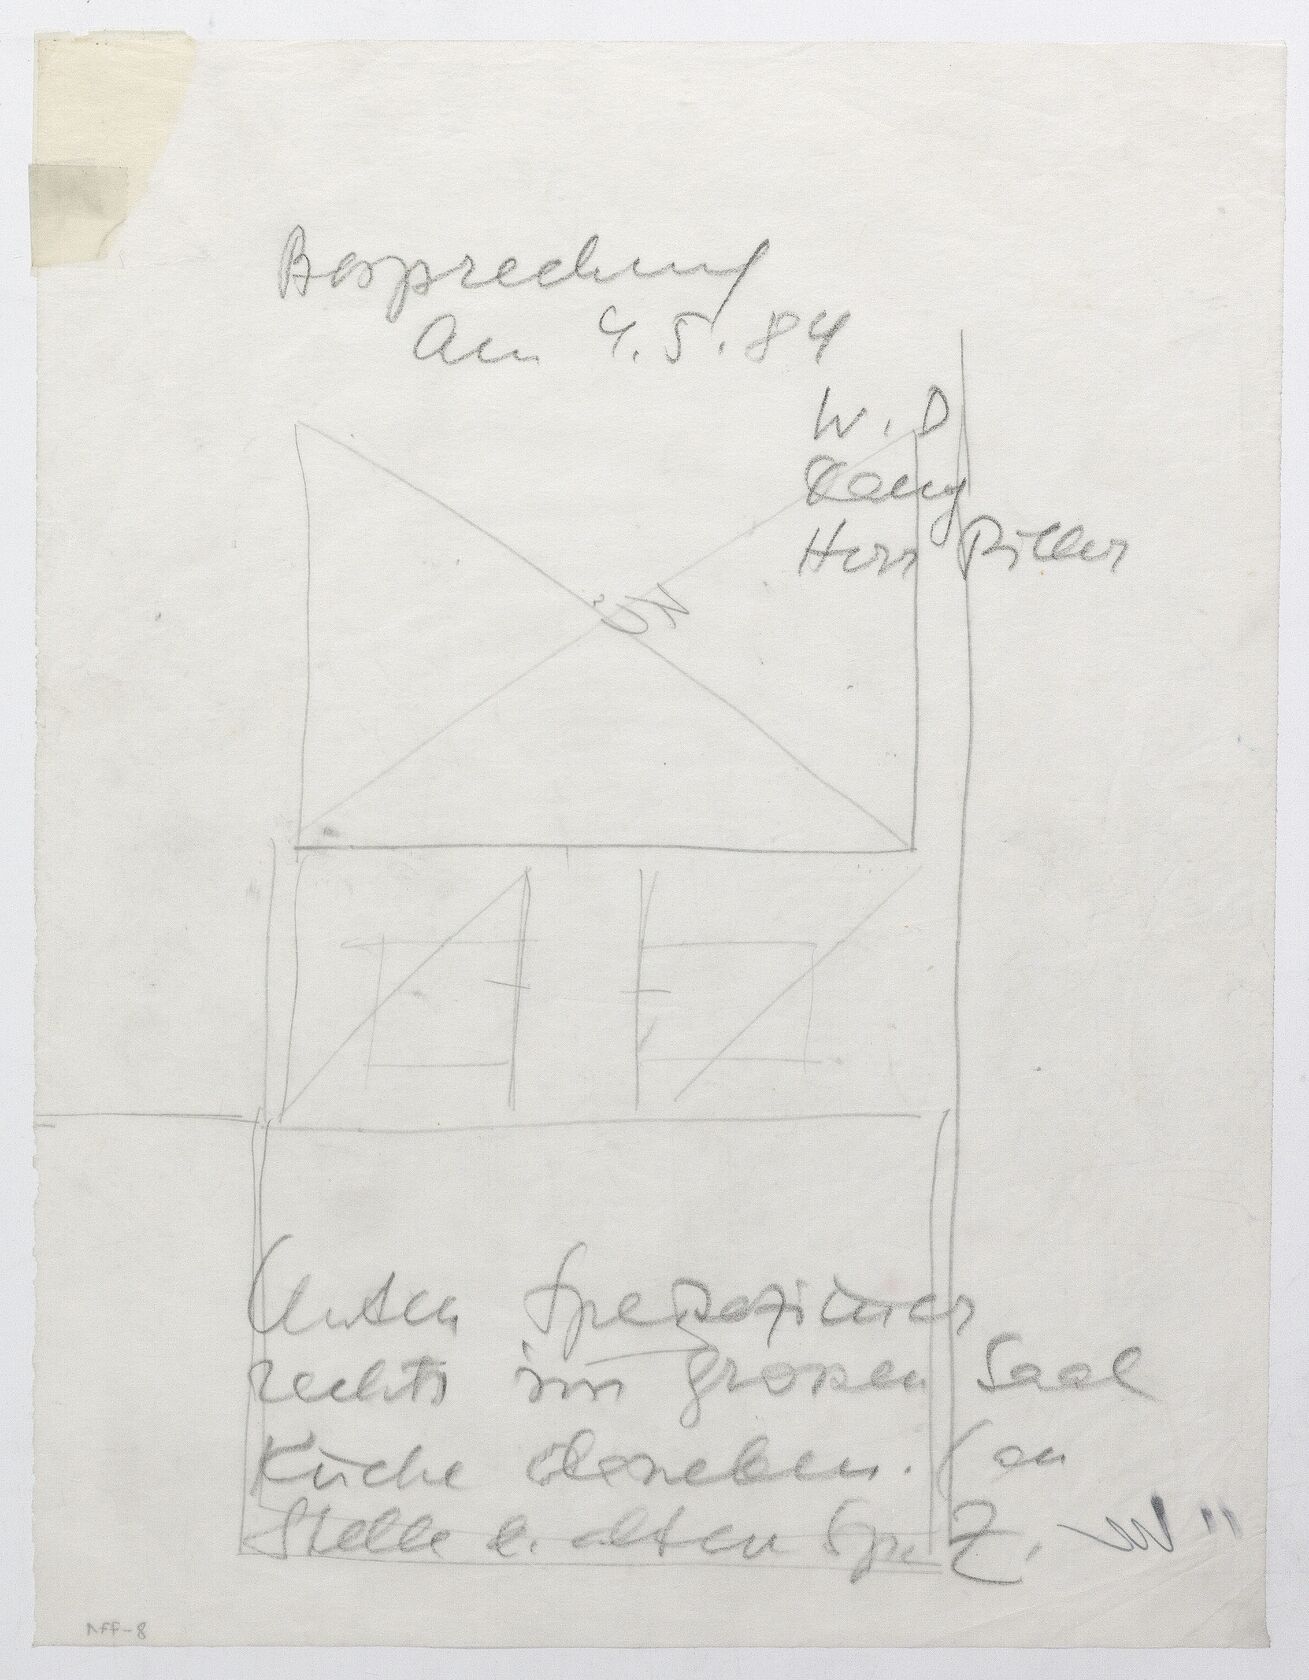 Besprechung
am 4.5.84
W.D
Herr Piller
Unten Speisezimmer
rechts im grossen Saal
Küche daneben. (an
Stelle d. alten Sp. Z.